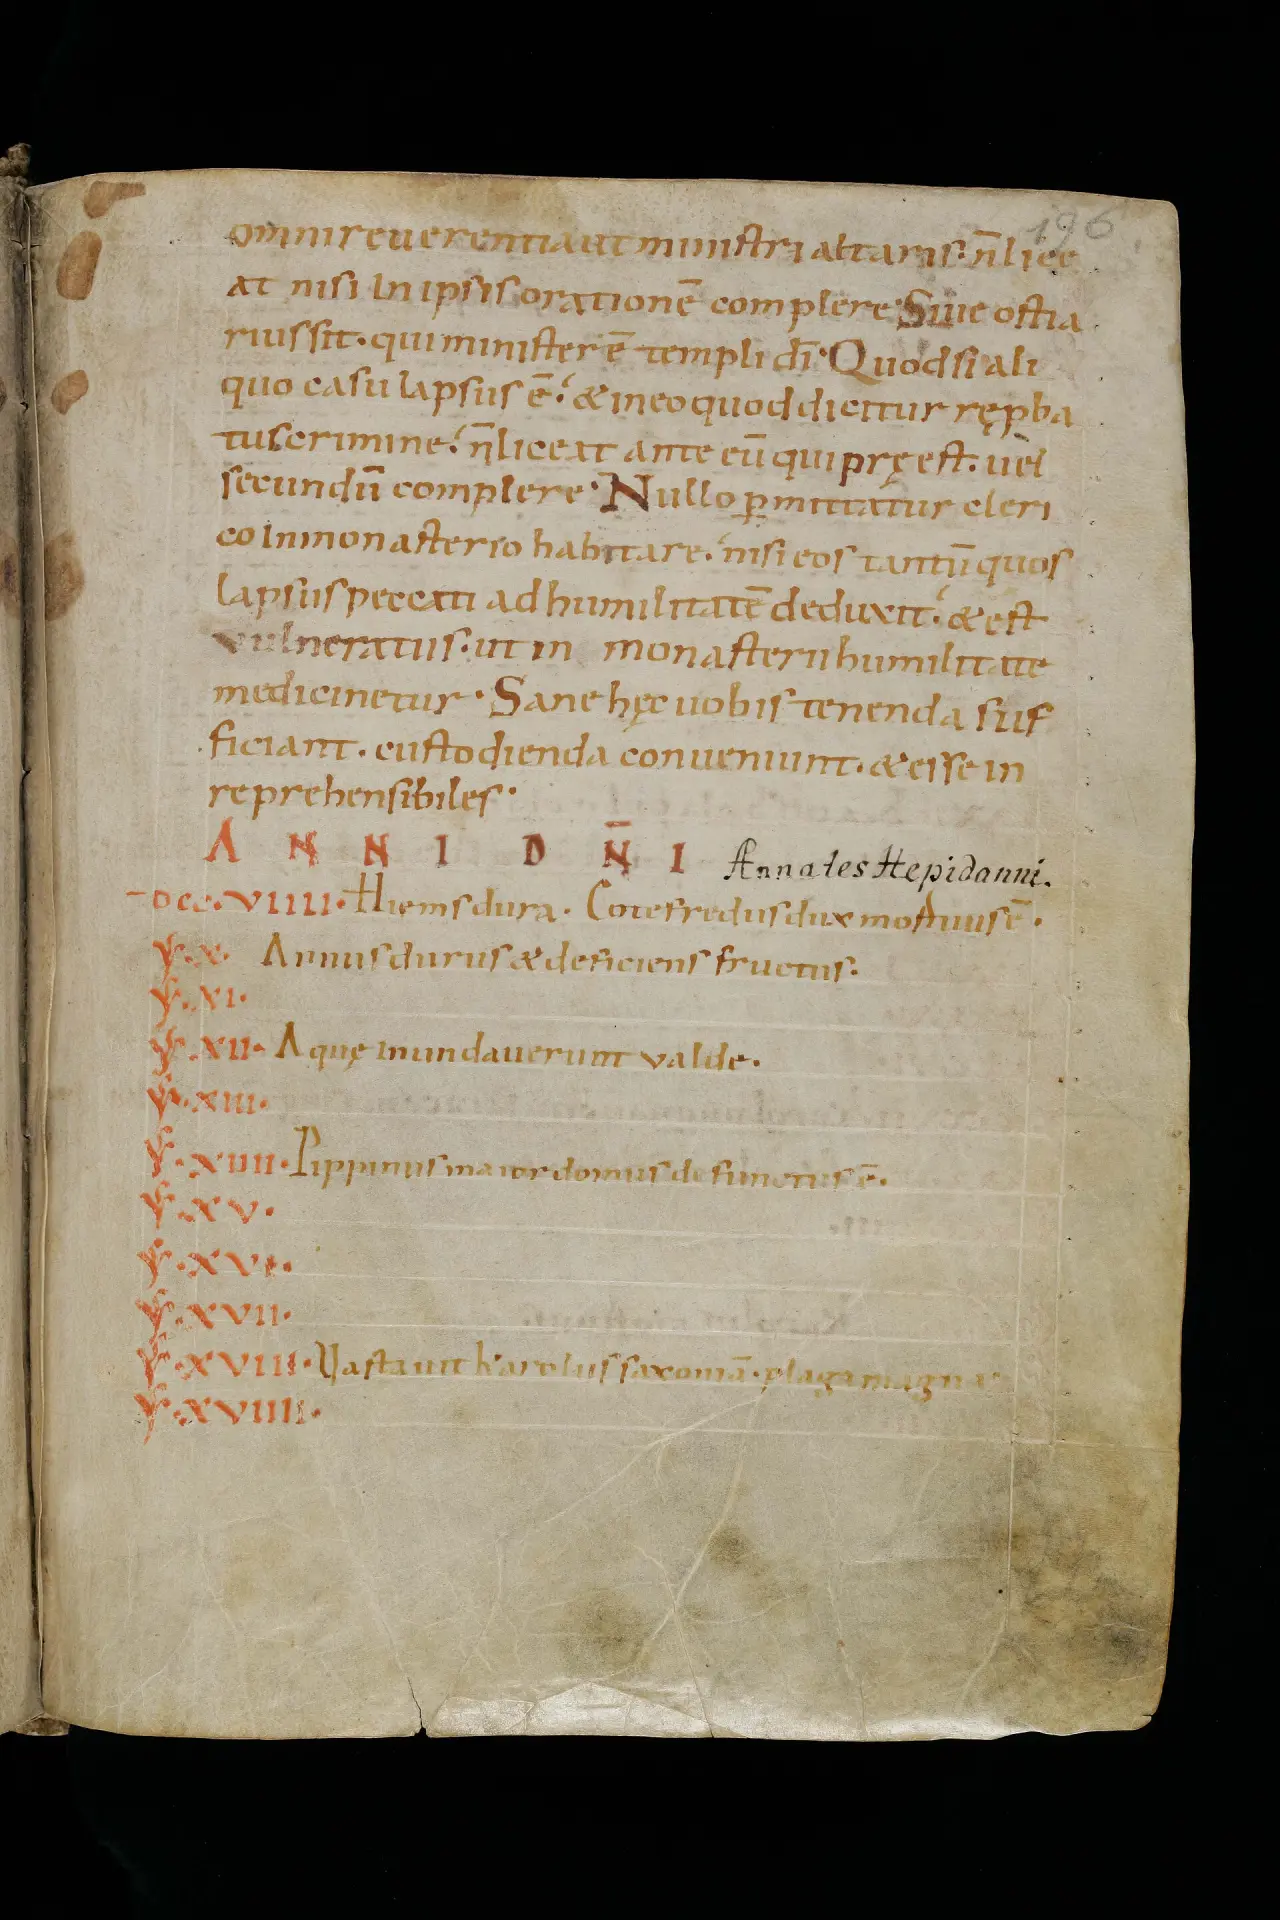 196
omni reuerentia ut ministri altaris· n̄ lice
at nisi in ipsis orationē complere· Siue ostia
rius sit· qui minister ē templi dī· Quodsi ali
quo casu lapsus ē· & in eo quod dicitur rępba
tus crimine· n̄ liceat ante eū qui pręest· uel
secundū complere· Nullo pmittatur cleri
co in monasterio habitare· nisi eos tantū quos
lapsus peccati ad humilitatē deduxit· & est
vulneratus· ut in monasterii humilitate
medicinetur· Sane hęc uobis tenenda suf
ficiant· custodienda conueniunt· & esse in
reprehensibiles·
ANNI DN̄I Annales Hepidanni.
DCC·VIIII· Hiems dura· Cotefredus dux mortuus ē·
X· Annus durus & deficiens fructus·
XI·
XII· Aquę inundauerunt valde·
XIII·
XIIII· Pippinus maior domus defunctus ē·
XV·
XVI·
XVII·
XVIII· Vastauit karolus saxoniā· plaga magna
XVIIII·